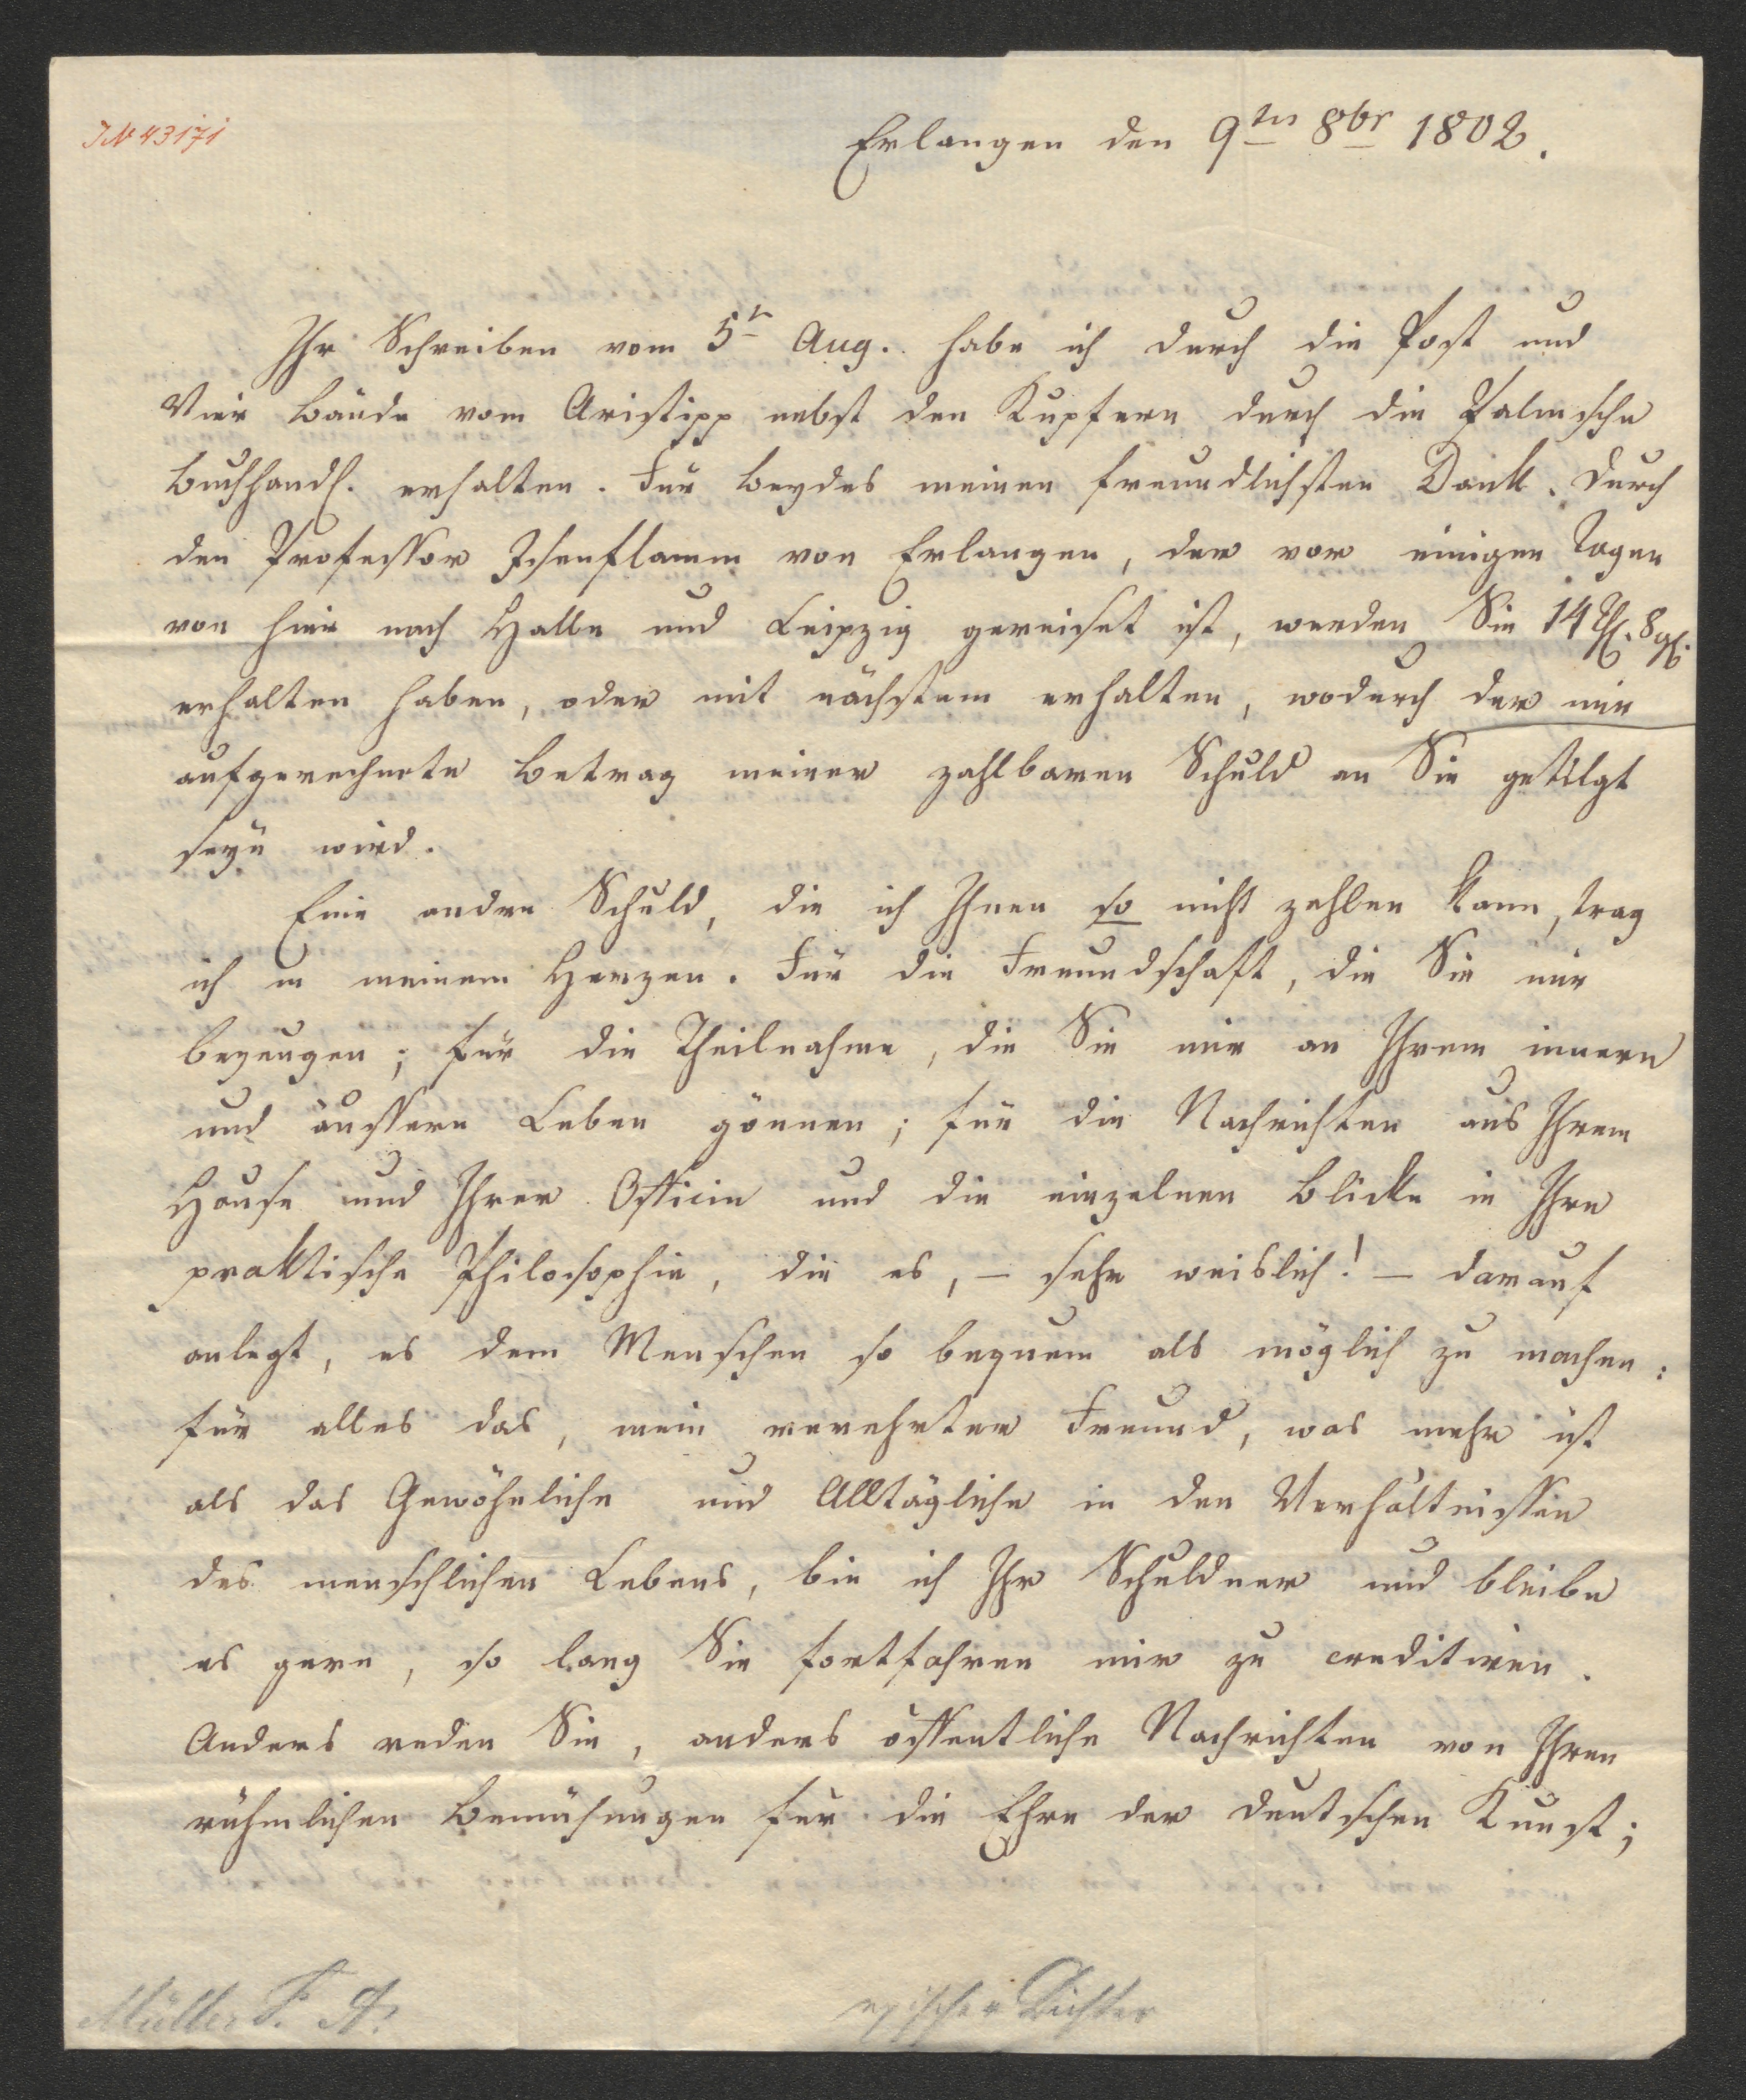 JN 43171
Erlangen den 9ten 8br 1802.
Ihr Schreiben vom 5t Aug. habe ich durch die Post und
Vier Bände vom Aristipp nebst den Kupfern durch die Palmsche
Buchhandl. erhalten. Für Beydes meinen freundlichsten Dank. Durch
den Professor Isenflamm von Erlangen, der vor einigen Tagen
von hier nach Halle und Leipzig gereiset ist, werden Sie 14 Thl. 8 gl.
erhalten haben, oder mit nächstem erhalten, wodurch der mir
aufgerechnete Betrag meiner zahlbaren Schuld an Sie getilgt
seyn wird.
Eine andre Schuld, die ich Ihnen so nicht zahlen kann, trag
ich in meinem Herzen. Für die Freundschaft, die Sie mir
bezeugen; für die Theilnahme, die Sie mir an Ihrem innern
und äussern Leben gönnen; für die Nachrichten aus Ihrem
Hause und Ihrer Officin und die einzelnen Blicke in Ihre
praktische Philosophie, die es, – sehr weislich! – darauf
anlegt, es dem Menschen so bequem als möglich zu machen:
für alles das, mein verehrter Freund, was mehr ist
als das Gewöhnliche und Alltägliche in den Verhältnissen
des menschlichen Lebens, bin ich Ihr Schuldner und bleibe
es gern, so lang Sie fortfahren mir zu creditiren.
Anders reden Sie, anders öffentliche Nachrichten von Ihren
rühmlichen Bemühungen für die Ehre der deutschen Kunst;
Müller F. A.
epischer Dichter